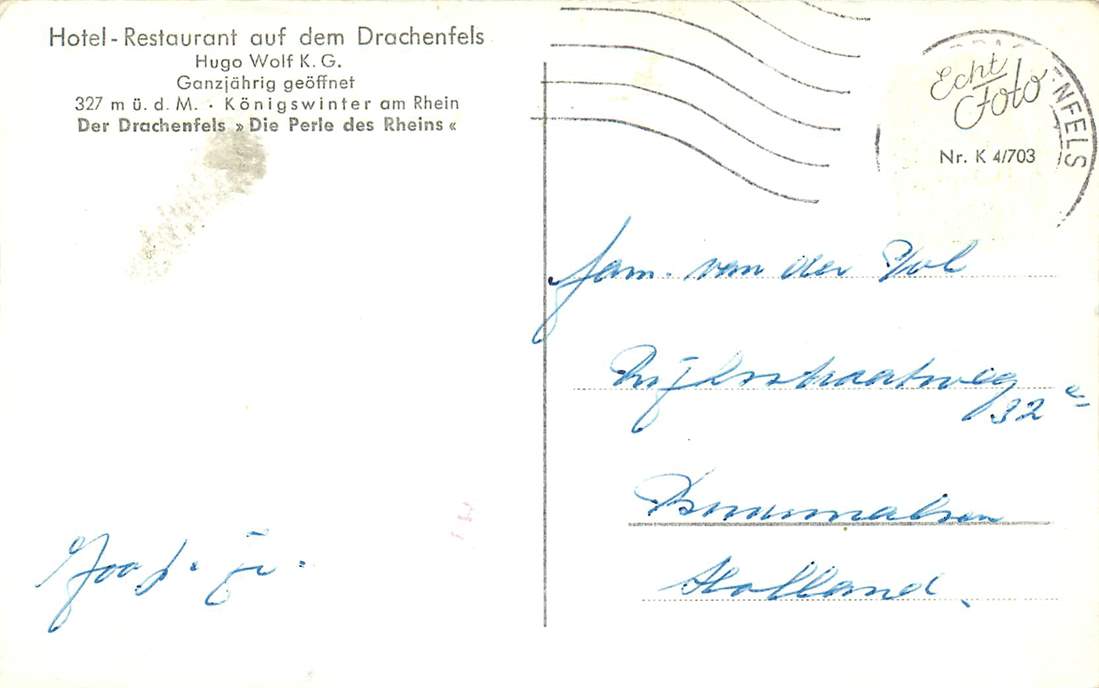 Hotel-Restaurant auf dem Drachenfels
Hugo Wolf K. G.
Ganzjährig geöffnet
327 m ü. d. M. · Königswinter am Rhein
Der Drachenfels » Die Perle des Rheins «
Echt
Foto
Nr. K 4/703
NFELS
fam. van der Pol
Rijksstraatweg
32
Holland.
Joop. Jr.